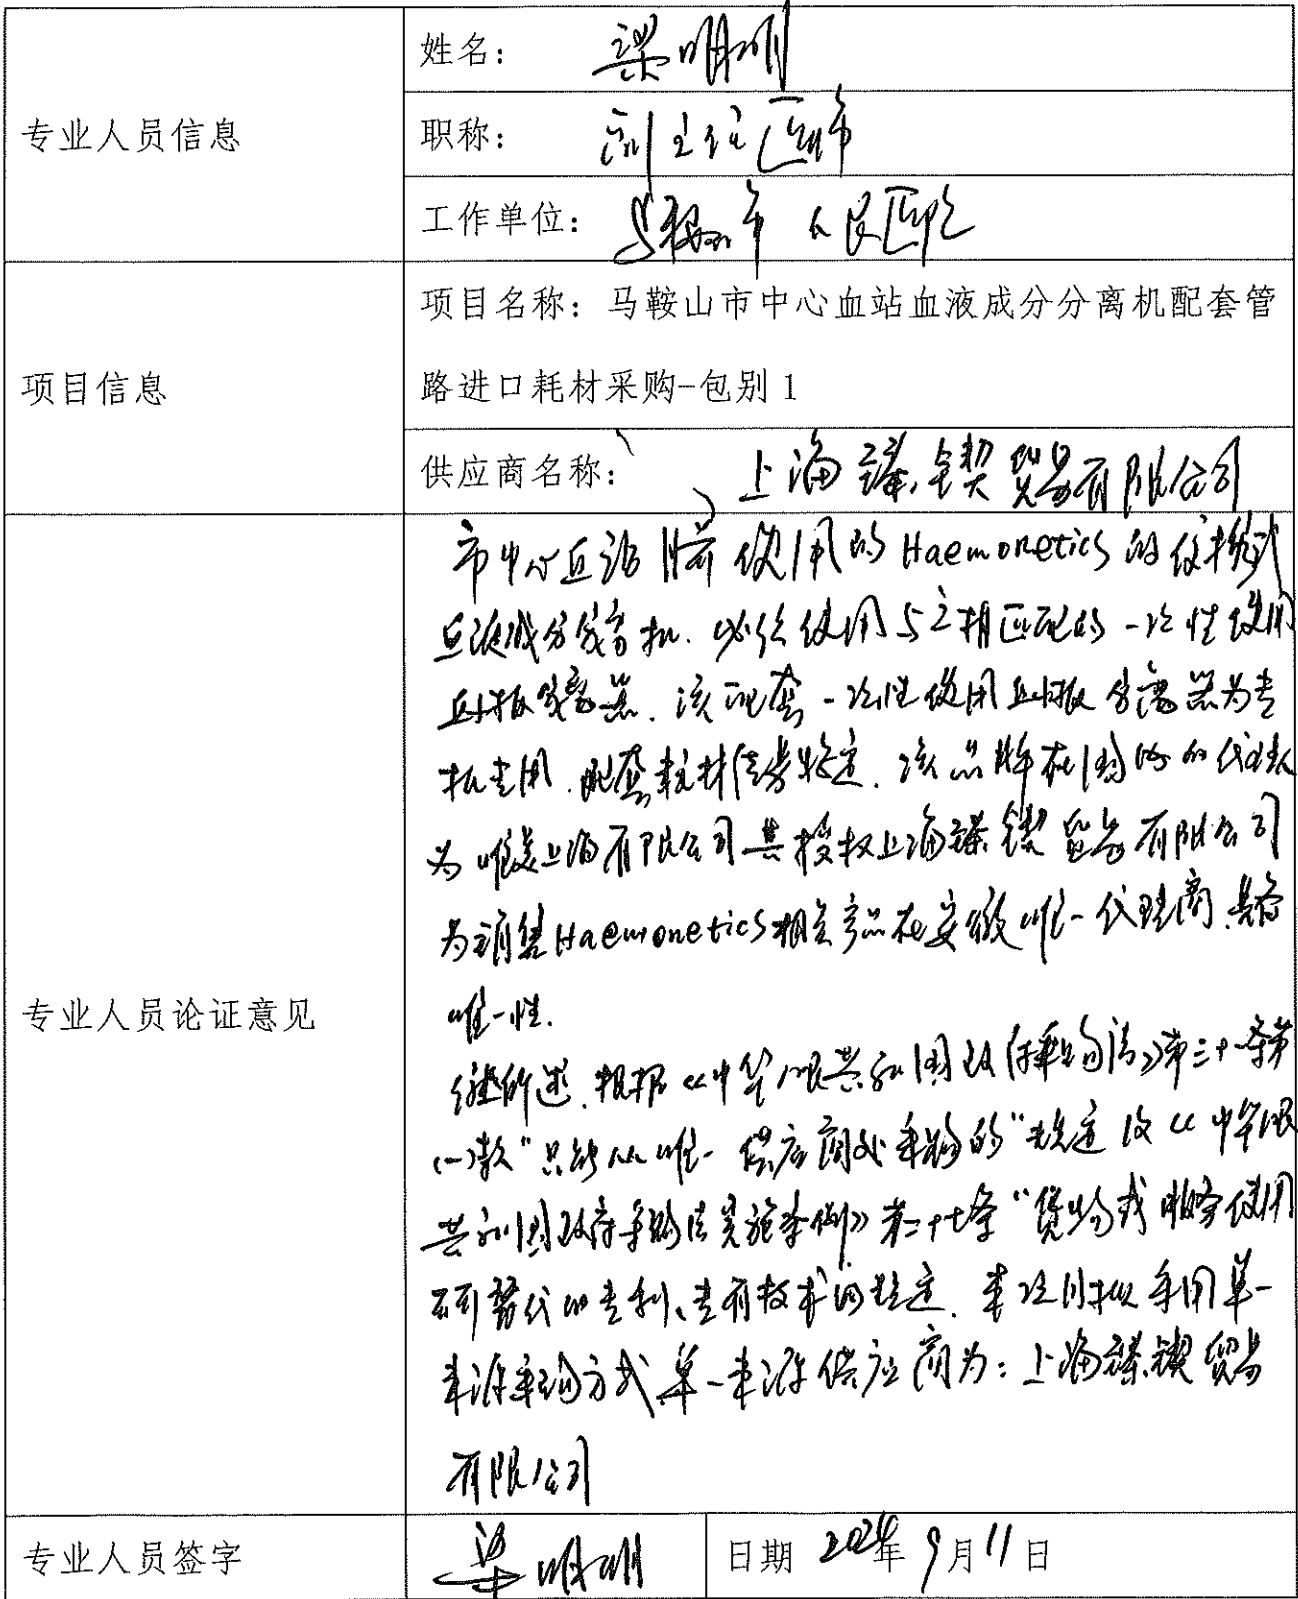 专业人员信息
姓名：梁明明
职称：副主任医师
工作单位：马鞍山市人民医院
项目信息
项目名称：马鞍山市中心血站血液成分分离机配套管
路进口耗材采购-包别1
供应商名称：上海 锲贸易有限公司
专业人员论证意见
市中心血站目前使用的Haemonetics的
血液成分分离机.必须使用与之相匹配的一次性使用
血小板分离器.该配套一次性使用血小板分离器为专
机专用.配套耗材 特定.该品牌在国内的代
为唯美上海有限公司其授权上海 锲贸易有限公司
为销售Haemonetics相关产品在安徽唯一代理商.具备
唯一性.
综上所述.根据《中华人民共和国政府采购法》第三十一条第
(一)款"只能从唯一供应商处采购的"规定及《中华人民
共和国政府采购法实施条例》第二十七条"货物或 使用
不可替代的专利、专有技术的规定.本次 拟采用单一
来源采购方式单一来源供应商为：上海 锲贸易
有限公司
专业人员签字 梁明明 日期 2024年9月11日